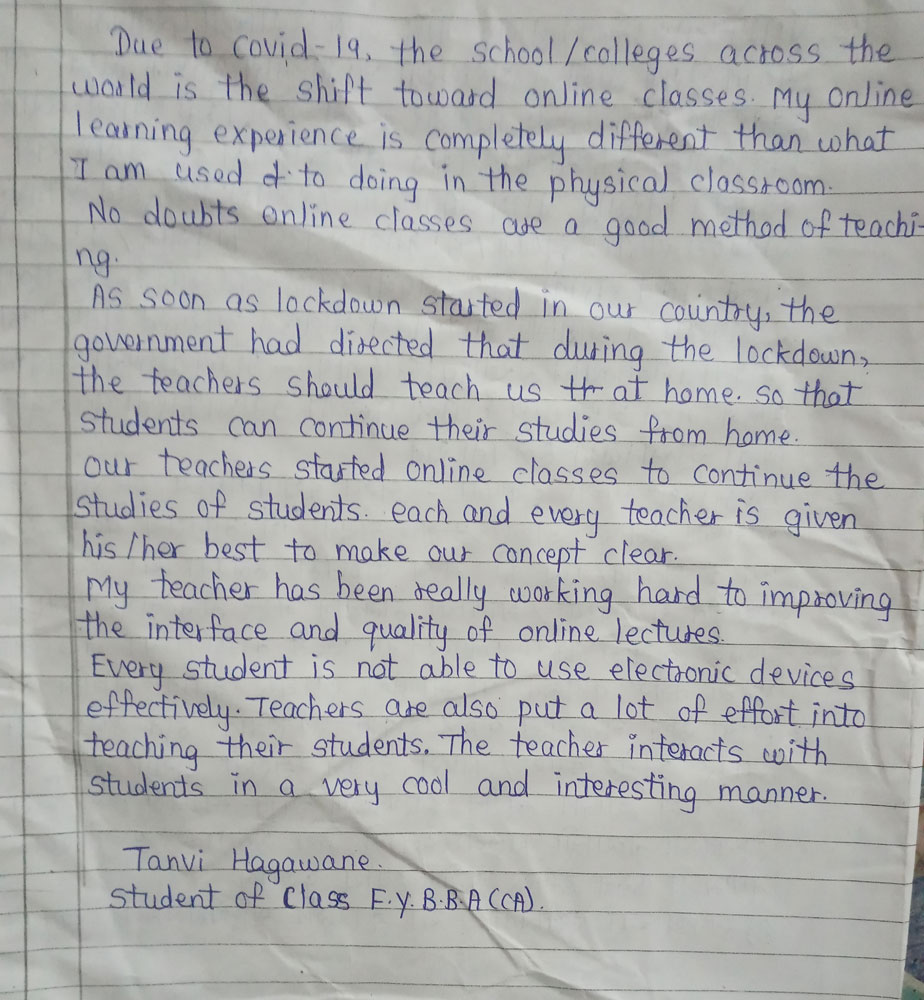 Due to covid-19, the school/colleges across the
world is the shift toward online classes. My online
learning experience is completely different than what
I am used to doing in the physical classroom.
No doubts online classes are a good method of teachi-
ng.
As soon as lockdown started in our country, the
government had directed that during the lockdown,
the teachers should teach us at home. so that
students can continue their studies from home.
our teachers started online classes to continue the
studies of students. each and every teacher is given
his/her best to make our concept clear.
My teacher has been really working hard to improving
the interface and quality of online lectures.
Every student is not able to use electronic devices
effectively. Teachers are also put a lot of effort into
teaching their students. The teacher interacts with
students in a very cool and interesting manner.
Tanvi Hagawane.
Student of Class F.Y.B.B.A (CA).